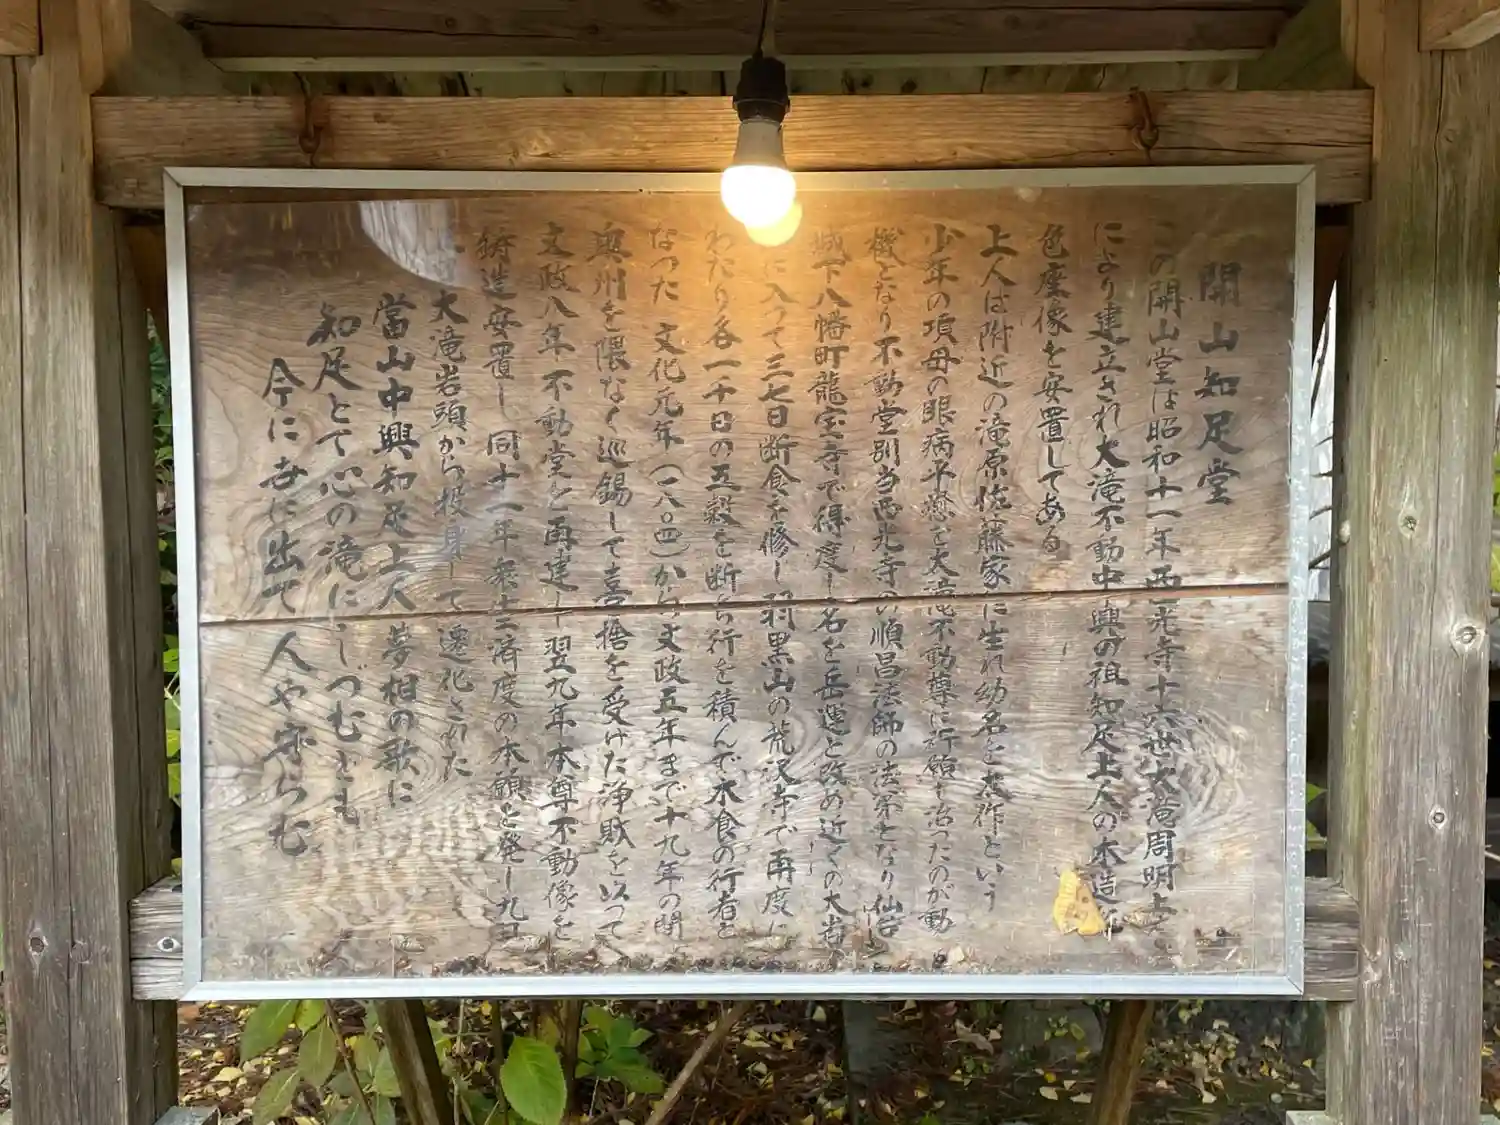 開山知足堂
この開山堂は昭和十一年西光寺十六世大滝周明上
により建立され大滝不動中興の祖知足上人の木造
色座像を安置してある
上人は附近の滝原佐藤家に生れ幼名を太作という
少年の項母の眼病平癒を大滝不動尊に祈願し治ったのが動
機となり不動堂別当西光寺の順昌法師の法弟となり仙台
城下八幡町龍宝寺で得度し名を岳運と改め近くの大岩
に入って三七日断食を修し羽黒山の荒沢寺で再度に
わたり各一千日の五穀を断ち行を積んで木食の行者と
なった 文化元年(一八〇四)から文政五年まで十九年の間
奥州を隈なく巡錫して喜捨を受けた浄財を以って
文政八年不動堂を再建し翌九年本尊不動像を
鋳造安置し同十一年衆生済度の本願を発し九月
大滝岩頭から投身して遷化された
當山中興知足上人夢想の歌に
知足とて心の滝にしづむとも
今に寺に出て人や守らむ